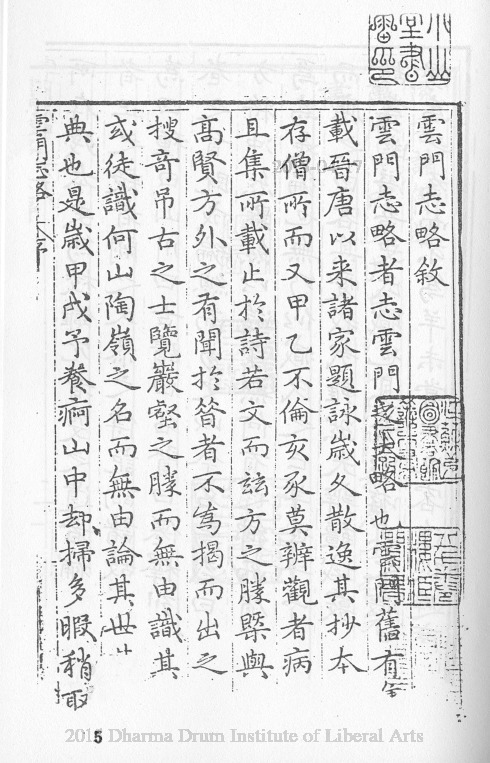 雲門志略敘
雲門志略者志雲門之大略也雲門舊有
載晉唐以来諸家題詠嵗久散逸其抄本
存僧所而又甲乙不倫亥豕莫辨觀者病
且集所載止於詩若文而玆方之勝槩與
髙賢方外之有聞扵昔者不為揭而出之
搜竒吊古之士覽巖壑之勝而無由識其
或徒識何山陶嶺之名而無由論其世
典也是嵗甲戌予養痾山中却掃多暇稍取
雲門志略
序
5
2015 Dharma Drum Institute of Liberal Arts